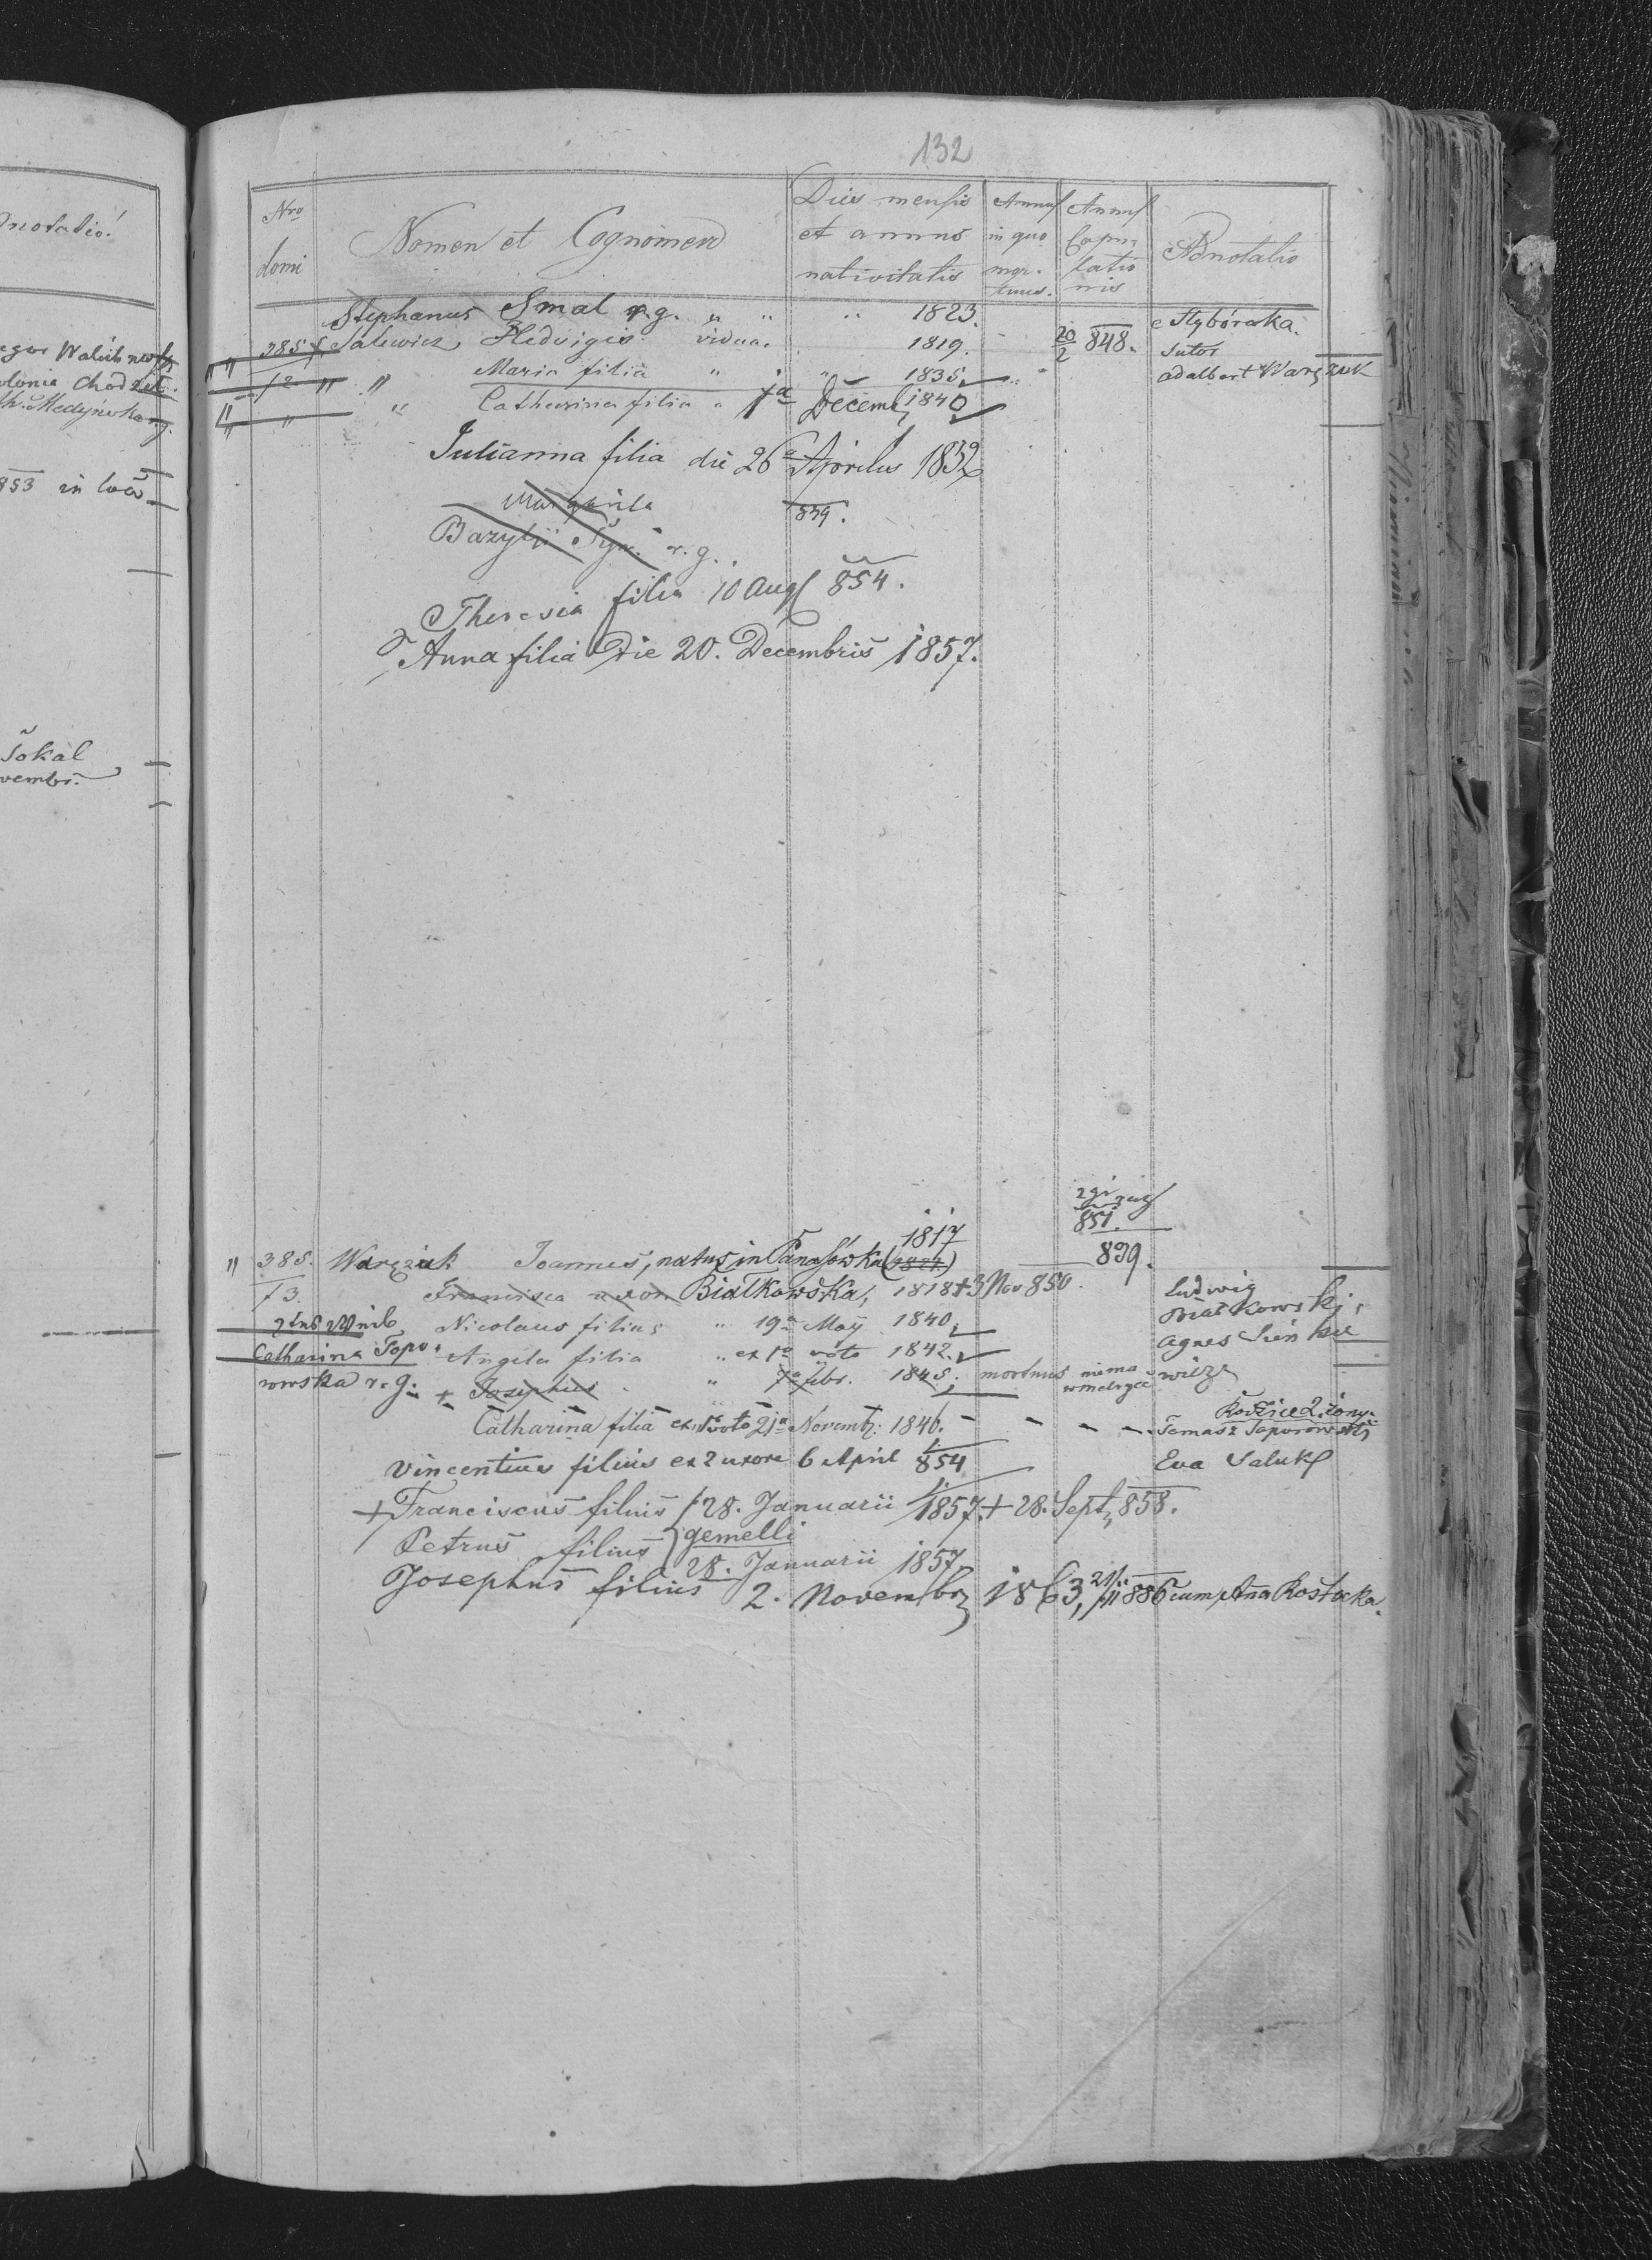 132
Nro domi
Nomen et Cognomen
Dies mensis et annus nativitatis
Annus in quo mortuus.
Annus Copulationis
Adnotatio
Stephanus Smal r.g. " " " 1823.
385 Salewicz Hedvigis vidua. 1819. 20/2 848. sutor
/2 " " Maria filia " " 1835 adalbert Warzuk
" " " Catharina filia " 1a Decemb 1840
Julianna filia die 26a Aprilis 1832
Margarita 839.
Bazylii Syn. r.g.
Theresia filia 10 Aug 854.
Anna filia Die 20. Decembris 1857.
851.
1817
" 385. Warzuk Joannes, natus in Panasówka (1824) 839.
/3. Francisca uxor Białkowska, 1818 + 3 Nov 850. Ludwig
Białkowski,
Nicolaus filius " 19a Maÿ 1840
Agnes
Catharina Topo Angela filia " ex 1o voto 1842.
rowska r.g. + Josephus " 7a febr. 1845. mortuus nema wmetryce
Catharina filia ex 1o voto 21a Novemb: 1846. - - - -
Rodzice 2. żony.
Tomasz Toporowski
Vincentius filius ex 2 uxore 6 April 854
Eva Saluk
+ Franciscus filius 28. Januarii 1857. + 28. Sept 858.
gemelli
Petrus filius 28. Januarii 1857
Josephus filius 2. Novembr 1863, 21/11 886 cum Ana Kostocka.
Sokal
vembr.
853 in